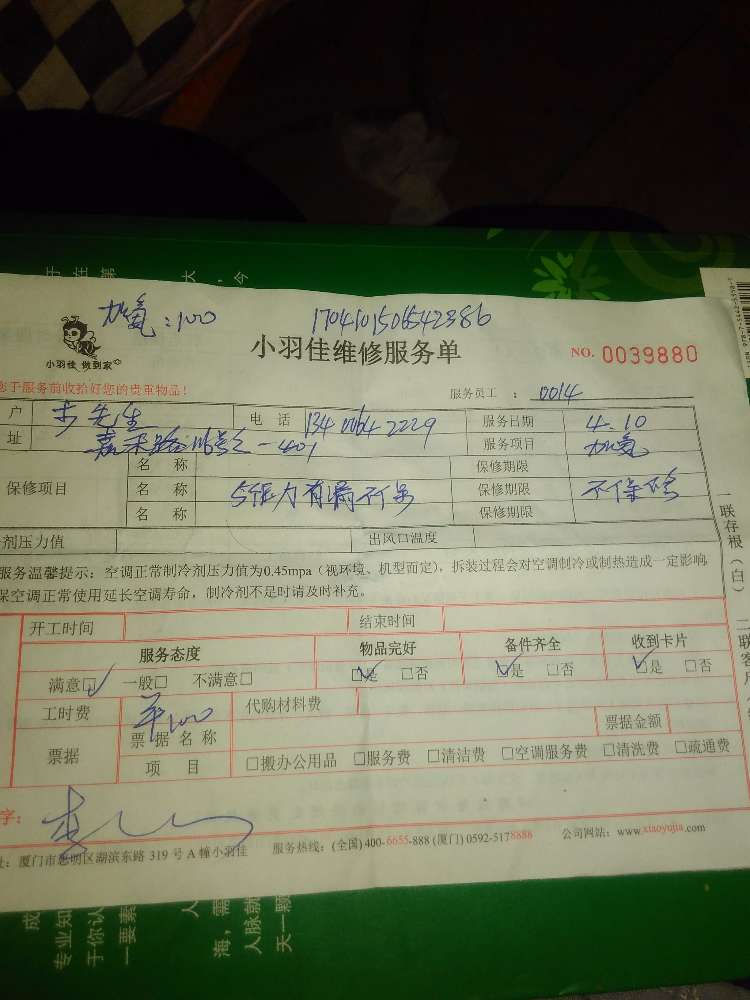 加氨:100 1704101506542386
小羽佳 做到家
小羽佳维修服务单 NO. 0039880
您于服务前收拾好您的贵重物品!
服务员工 : 0014
户 先生 电 话 134 0064 2229 服务日期 4.10
址 嘉禾路 -401 服务项目 加氨
名 称 保修期限
保修项目 名 称 保修期限 不保修
名 称 保修期限
剂压力值 出风口温度
服务温馨提示:空调正常制冷剂压力值为0.45mpa(视环境、机型而定),拆装过程会对空调制冷或制热造成一定影响
保空调正常使用延长空调寿命,制冷剂不足时请及时补充。
开工时间 结束时间
服务态度 物品完好 备件齐全 收到卡片
满意□ 一般□ 不满意□ □是 □否 □是 □否 □是 □否
工时费 100 代购材料费
票据 票据名称 票据金额
项 目 □搬办公用品 □服务费 □清洁费 □空调服务费 □清洗费 □疏通费
字:
址:厦门市思明区湖滨东路 319 号 A 幢小羽佳 服务热线:(全国)400-6655-888 (厦门) 0592-5178888 公司网站:www.xiaoyujia.com
一联存根(白)
二联客户
成
专业知
于你认
一要素
人
海,需
人脉就
天一颗